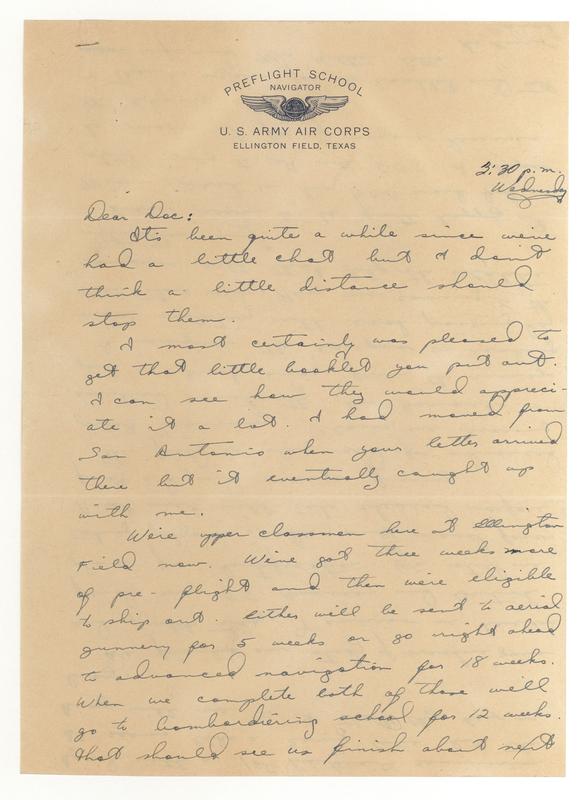 PREFLIGHT SCHOOL
NAVIGATOR
U. S. ARMY AIR CORPS
ELLINGTON FIELD, TEXAS
3:30 p.m.
Wednesday
Dear Doc:
It's been quite a while since we've
had a little chat but I don't
think a little distance should
stop them.
I most certainly was pleased to
get that little booklet you put out.
I can see how they would appreci-
ate it a lot. I had moved from
San Antonio when your letter arrived
there but it eventually caught up
with me.
We're upper classmen here at Ellington
Field now. We've got three weeks more
of pre-flight and then we're eligible
to ship out. Either will be sent to aerial
gunnery for 5 weeks or go right ahead
to advanced navigation for 18 weeks.
When we complete both of those we'll
go to bombardiering school for 12 weeks.
That should see us finish about next